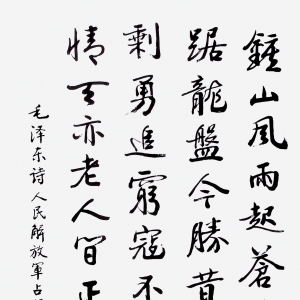 鍾山風雨起蒼
踞龍盤今勝昔
剩勇追窮寇不
情天亦老人間正
毛泽东诗人民解放軍占